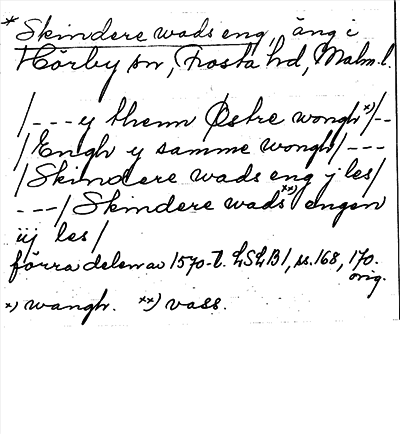 * Skindere wads eng, äng i
Hörby sn, Frosta hd, Malm. l.
/--- y thenn Østre wongh *) /--
/Engh y samme wongh/ ---
/Skindere wads eng j les/
---/ Skindere wads **) engen
iij les/
förra delen av 1570-t. LSLB1, ss. 168, 170.
orig.
*) wangh. **) vass.